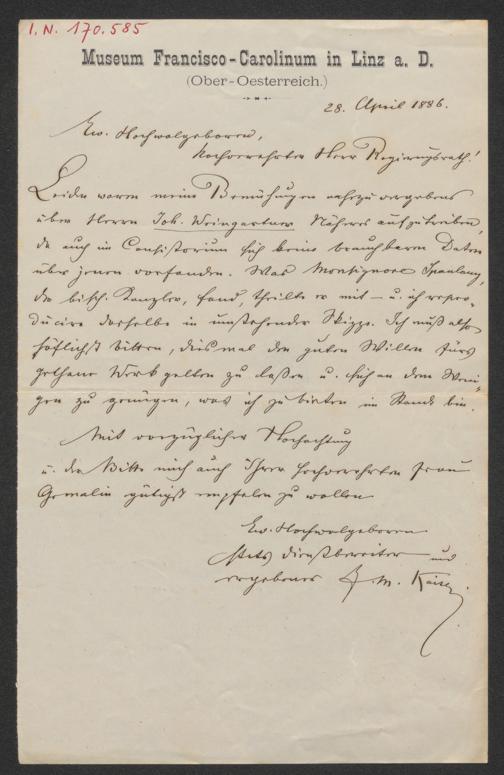 I. N. 170.585
Museum Francisco-Carolinum in Linz a. D.
(Ober-Oesterreich.)
28. April 1886.
Ew. Hochwolgeboren,
Hochverehrter Herr Regierungsrath!
Leider waren meine Bemühungen nahezu vergebens
über Herrn Joh. Weingartner Näheres aufzutreiben,
da auch im Consistorium sich keine brauchbaren Daten
über jenen vorfanden. Was Monsignore
der bisch. Kanzler, fand, theilte er mit – u. ich repro-
ducire dasselbe in umstehender Skizze. Ich muß also
höflichst bitten, diesmal den guten Willen fürs
gethane Werk gelten zu laßen u. sich an dem Weni-
gen zu genügen, was ich zu bieten im Stande bin.
Mit vorzüglicher Hochachtung
u. der Bitte mich auch Ihrer hochverehrten Frau
Gemalin gütigst empfelen zu wollen
Ew. Hochwolgeboren
stets dienstbereiter und
ergebener J. M. Kaiser